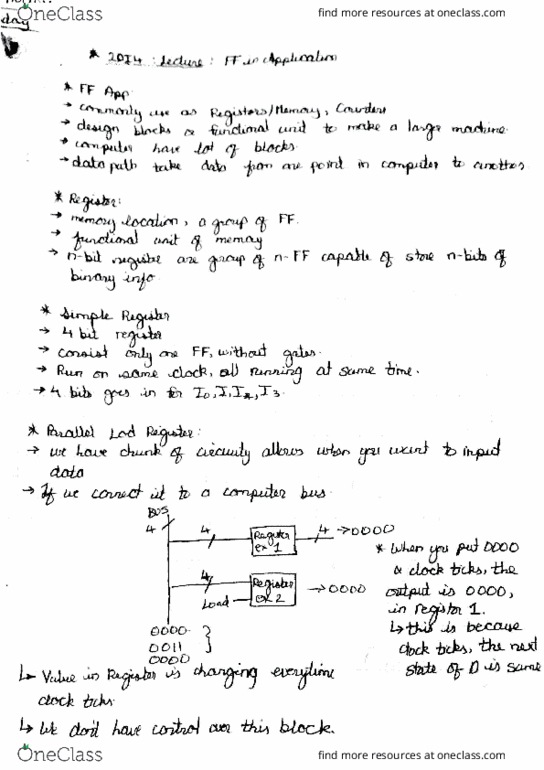 OneClass
find more resources at oneclass.com
day
* 2014 : Lecture : FF in Application
* FF App
→ commonly use as Registers/Memory, Counters
→ design blocks & functional unit to make a larger machine
→ computer have lot of blocks
→ data path take data from one point in computer to another
* Register:
→ memory location, a group of FF.
→ functional unit of memory
→ n-bit register are group of n-FF capable of store n-bits of
binary info.
* Simple Register
→ 4 bit register
→ consist only one FF, without gates.
→ Run on same clock, all running at same time.
→ 4 bits goes in for I0, I1, I2, I3.
* Parallel Lod Register:
→ we have chunk of circuity allows when you want to input
data
→ If we connect it to a computer bus.
BUS
4
4
Register
ex 1
4 → 0000
4
Load
Register
ex 2
→ 0000
0000
0011
0000
* When you put 0000
& clock ticks, the
output is 0000,
in register 1.
↳ this is because
clock ticks, the next
state of D is same
↳ Value in Register is changing everytime
clock ticks
↳ We don't have control over this block.
OneClass
find more resources at oneclass.com